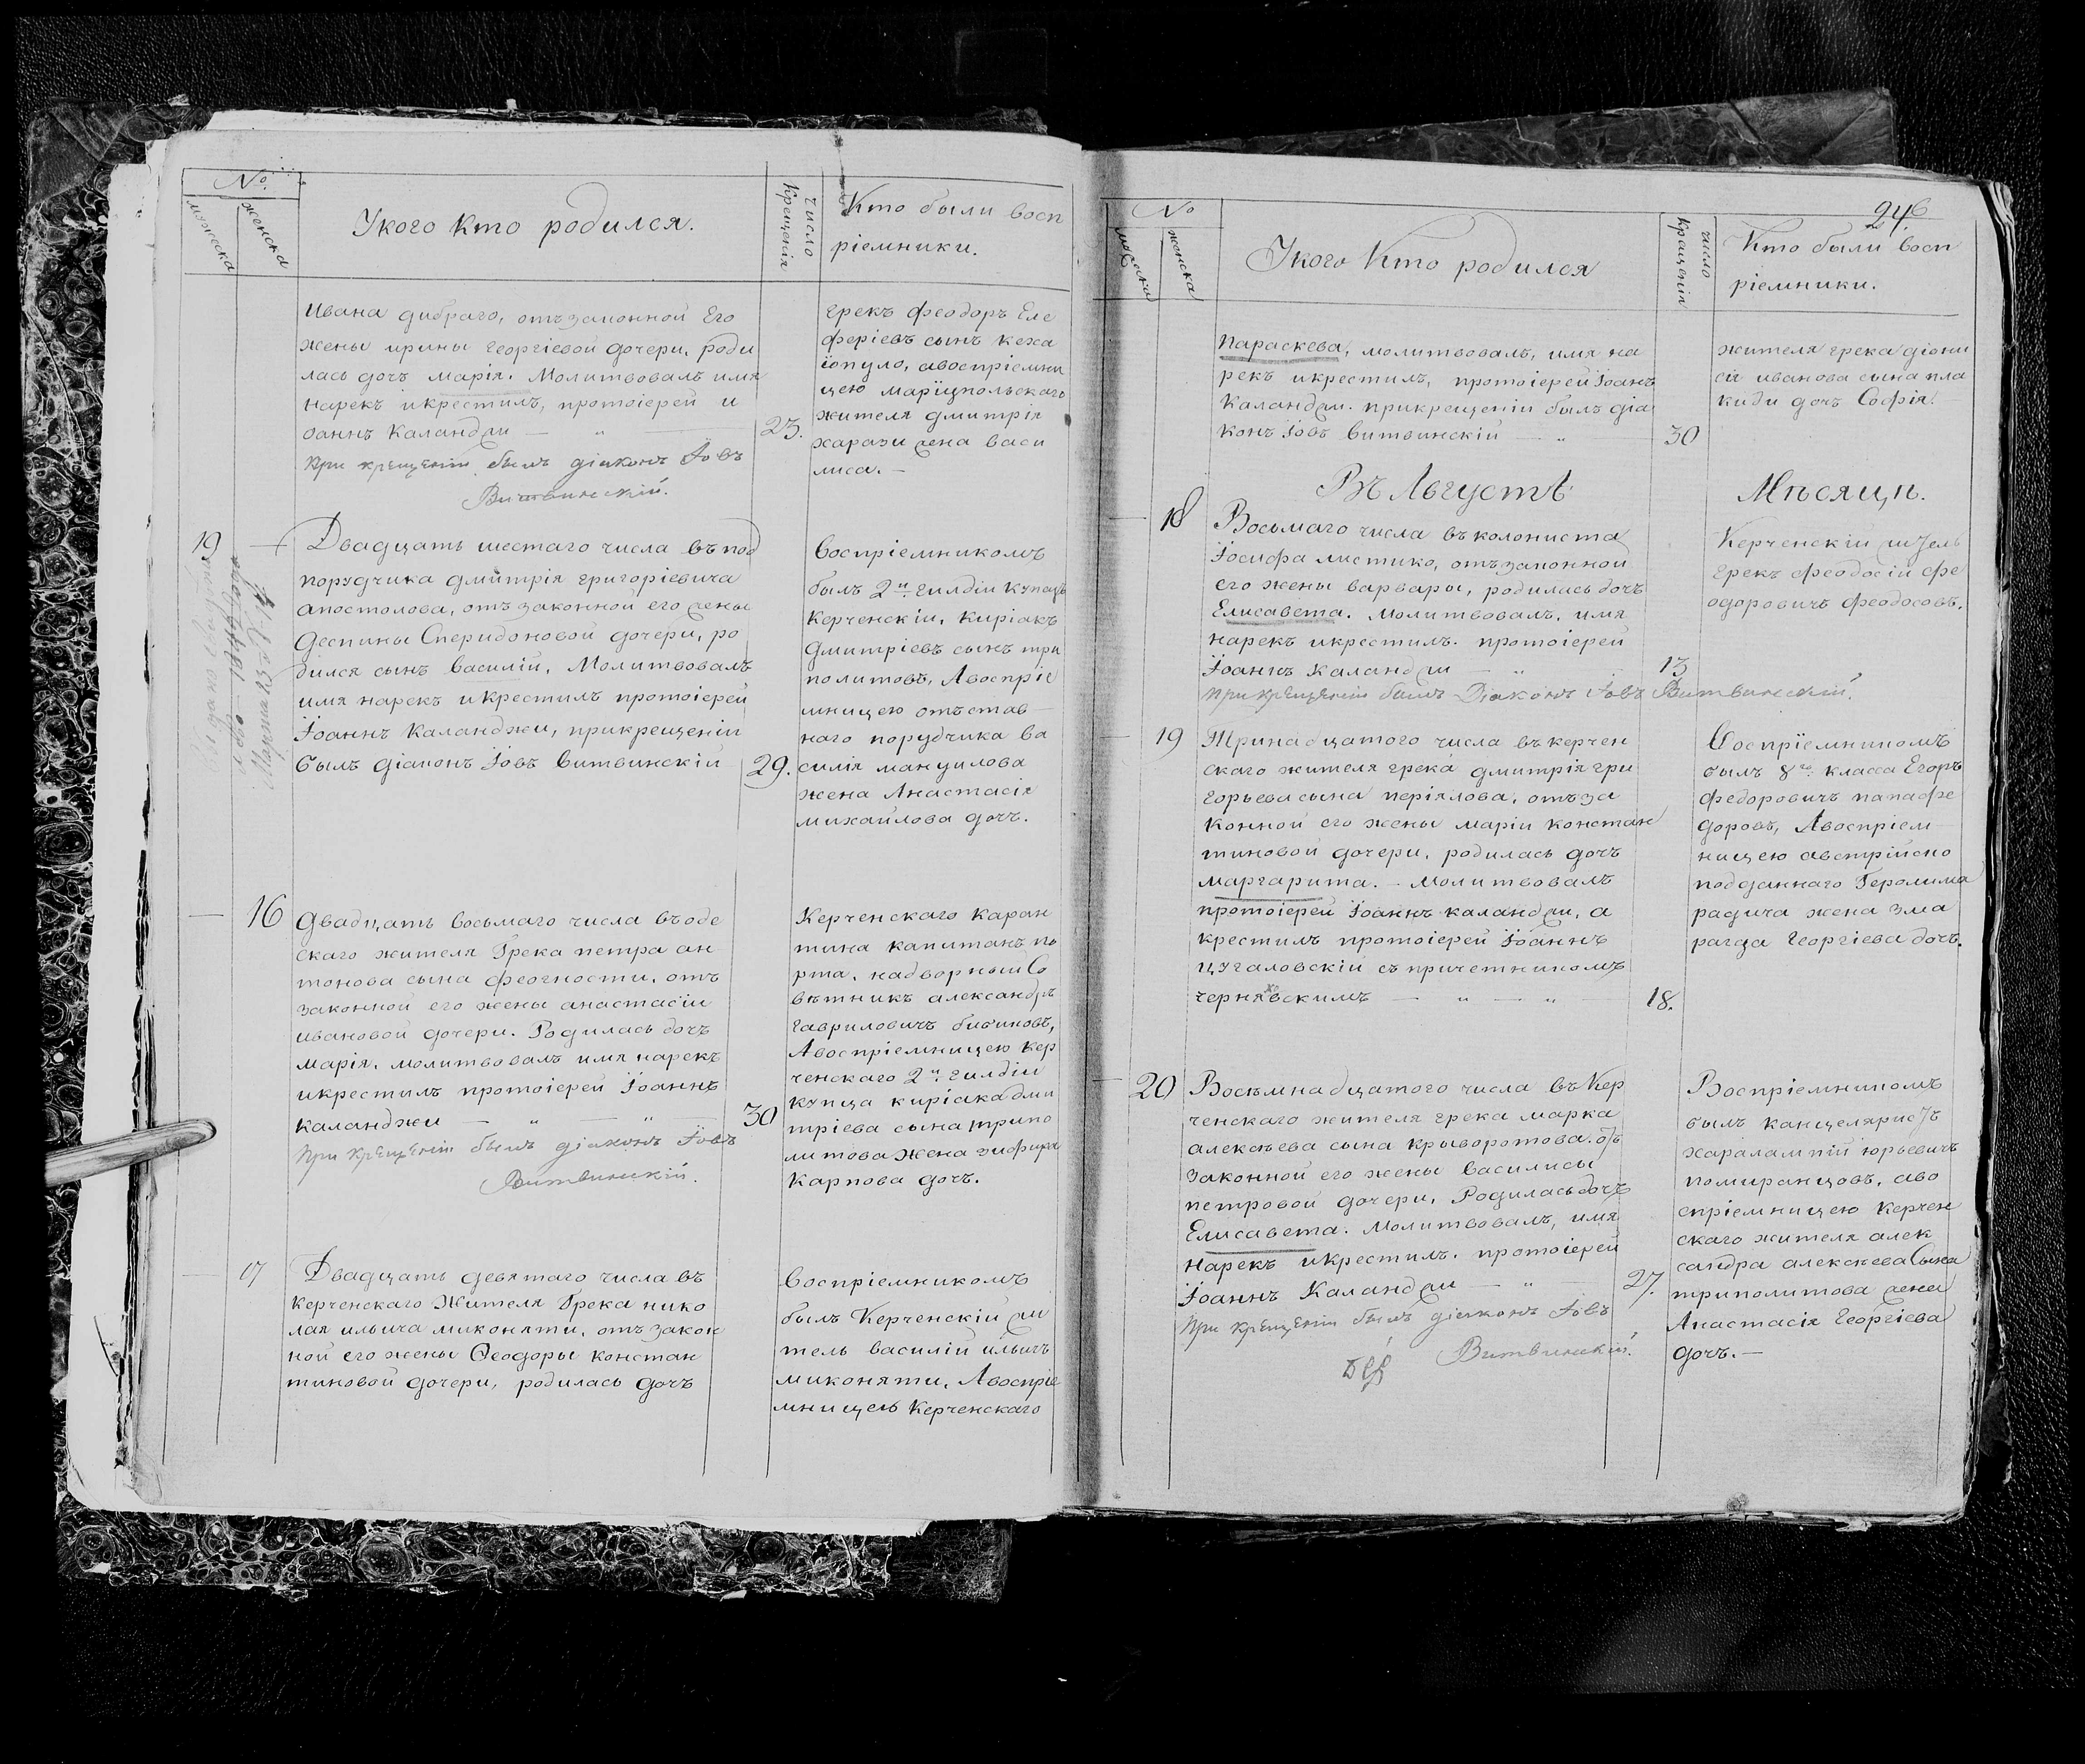 №
мужеска
женска
Укого Кто родился.
число
Крещенія
Кто были восп
ріемники.
Ивана дибраго, отъзаконной Его
жены ирины георгіевой дочери, роди
лась дочь марія. Молитвовалъ имя
нарекъ икрестилъ, протоіерей и
оаннъ Каланджи — „ —
23.
При крещеніи былъ діаконъ Іовъ
Витвинскій.
грекъ феодоръ Еле
феріевъ сынъ кеха
іопуло, авоспріемни
цею маріупольскаго
жителя дмитрія
харази жена васи
лиса. —
19
Двадцать шестаго числа въ под
порудчика дмитрія григоріевича
апостолова, отъ законной его жены
деспины Спиридоновой дочери, ро
дился сынъ василій, Молитвовалъ
имя нарекъ икрестилъ протоіерей
Іоаннъ Каланджи, прикрещеніи
былъ діаконъ Іовъ витвинскій
29.
Воспріемникомъ
былъ 2й гилдіи купецъ
Керченскій, Киріакъ
дмитріевъ сынъ три
политовъ, Авоспріе
мницею отъстав
наго порудчика ва
силія мануилова
жена Анастасія
михайлова дочь.
16
двадцать восьмаго числа въоде
скаго жителя Грека петра ан
тонова сына феогности, отъ
законной его жены анастасіи
ивановой дочери. Родилась дочь
марія, молитвовалъ имя нарекъ
икрестилъ протоіерей Іоаннъ
каланджи — „ — „ —
30
При крещеніи былъ діаконъ Іовъ
Витвинскій.
Керченскаго каран
тина капитанъ по
рта, надворный Со
вѣтникъ александръ
гавриловичъ бибиковъ,
Авоспріемницею кер
ченскаго 2й гилдіи
купца киріака дми
тріева сына трипо
литова жена
Карпова дочь.
17
Двадцать девятаго числа въ
керченскаго Жителя Грека нико
лая ильича миконяти, отъ закон
ной его жены Ѳеодоры констан
тиновой дочери, родилась дочь
Воспріемникомъ
былъ Керченскій жи
тель василій ильичъ
миконяти, Авоспріе
мницею Керченскаго
246
№
женска
Укого Кто родился
число
Крещенія
Кто были восп
ріемники.
Параскева, молитвовалъ, имя на
рекъ икрестилъ, протоіерей Іоаннъ
Каланджи. прикрещеніи былъ діа
конъ Іовъ витвинскій — „ —
30
жителя грека діони
сія иванова сына пла
киди дочь Софія.
Въ Августѣ
Мѣсяцѣ.
18
Восьмаго числа въколониста
Іосифа мистико, отъзаконной
его жены варвары, родилась дочь
Елисавета. Молитвовалъ, имя
нарекъ икрестилъ. протоіерей
Іоаннъ каланджи — „ —
13
При крещеніи былъ Діаконъ Іовъ Витвинскій.
Керченскій житель
грекъ феодосій фе
одоровичъ феодосовъ.
19
Тринадцатого числа въкерчен
скаго жителя грека дмитрія гри
горьева сына періялова, отъза
конной его жены маріи констан
тиновой дочери, родилась дочь
маргарита. — Молитвовалъ
протоіерей Іоаннъ каланджи, а
крестилъ протоіерей Іоаннъ
цугаловскій съ причетникомъ
чернявскимъ — „ — „ —
18.
Воспріемникомъ
былъ 8го класса Егоръ
федоровичъ папафе
доровъ, Авоспріем
ницею австрійско
подданнаго Геролима
радича жена зма
рагда Георгіева дочь.
20
Восьмнадцатого числа въ Кер
ченскаго жителя грека марка
алексѣева сына Крыворотова. отъ
законной его жены василисы
петровой дочери, Родилась дочь
Елисавета. Молитвовалъ, имя
нарекъ икрестилъ. протоіерей
Іоаннъ Каланджи — „
27.
При крещеніи былъ діаконъ Іовъ
Витвинскій.
Воспріемникомъ
былъ канцеляристъ
харалампій юрьевичъ
помиранцовъ, аво
спріемницею керчен
скаго жителя алек
сандра алексѣева Сына
триполитова жена
Анастасія Георгіева
дочь. —